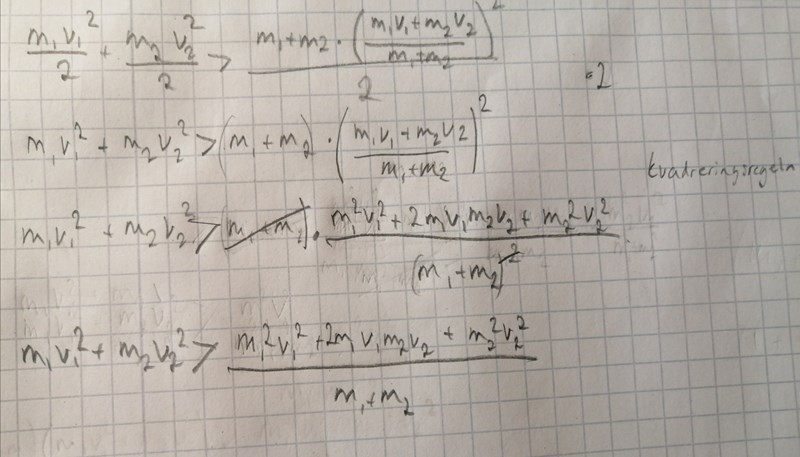 m₁v₁²/2 + m₂v₂²/2 > m₁+m₂ · ((m₁v₁+m₂v₂)/(m₁+m₂))²/2 ·2
m₁v₁² + m₂v₂² > (m₁+m₂) · ((m₁v₁+m₂v₂)/(m₁+m₂))²
kvadreringsregeln
m₁v₁² + m₂v₂² > (m₁+m₂) · (m₁²v₁² + 2m₁v₁m₂v₂ + m₂²v₂²)/(m₁+m₂)²
m₁v₁² + m₂v₂² > (m₁²v₁² + 2m₁v₁m₂v₂ + m₂²v₂²)/(m₁+m₂)